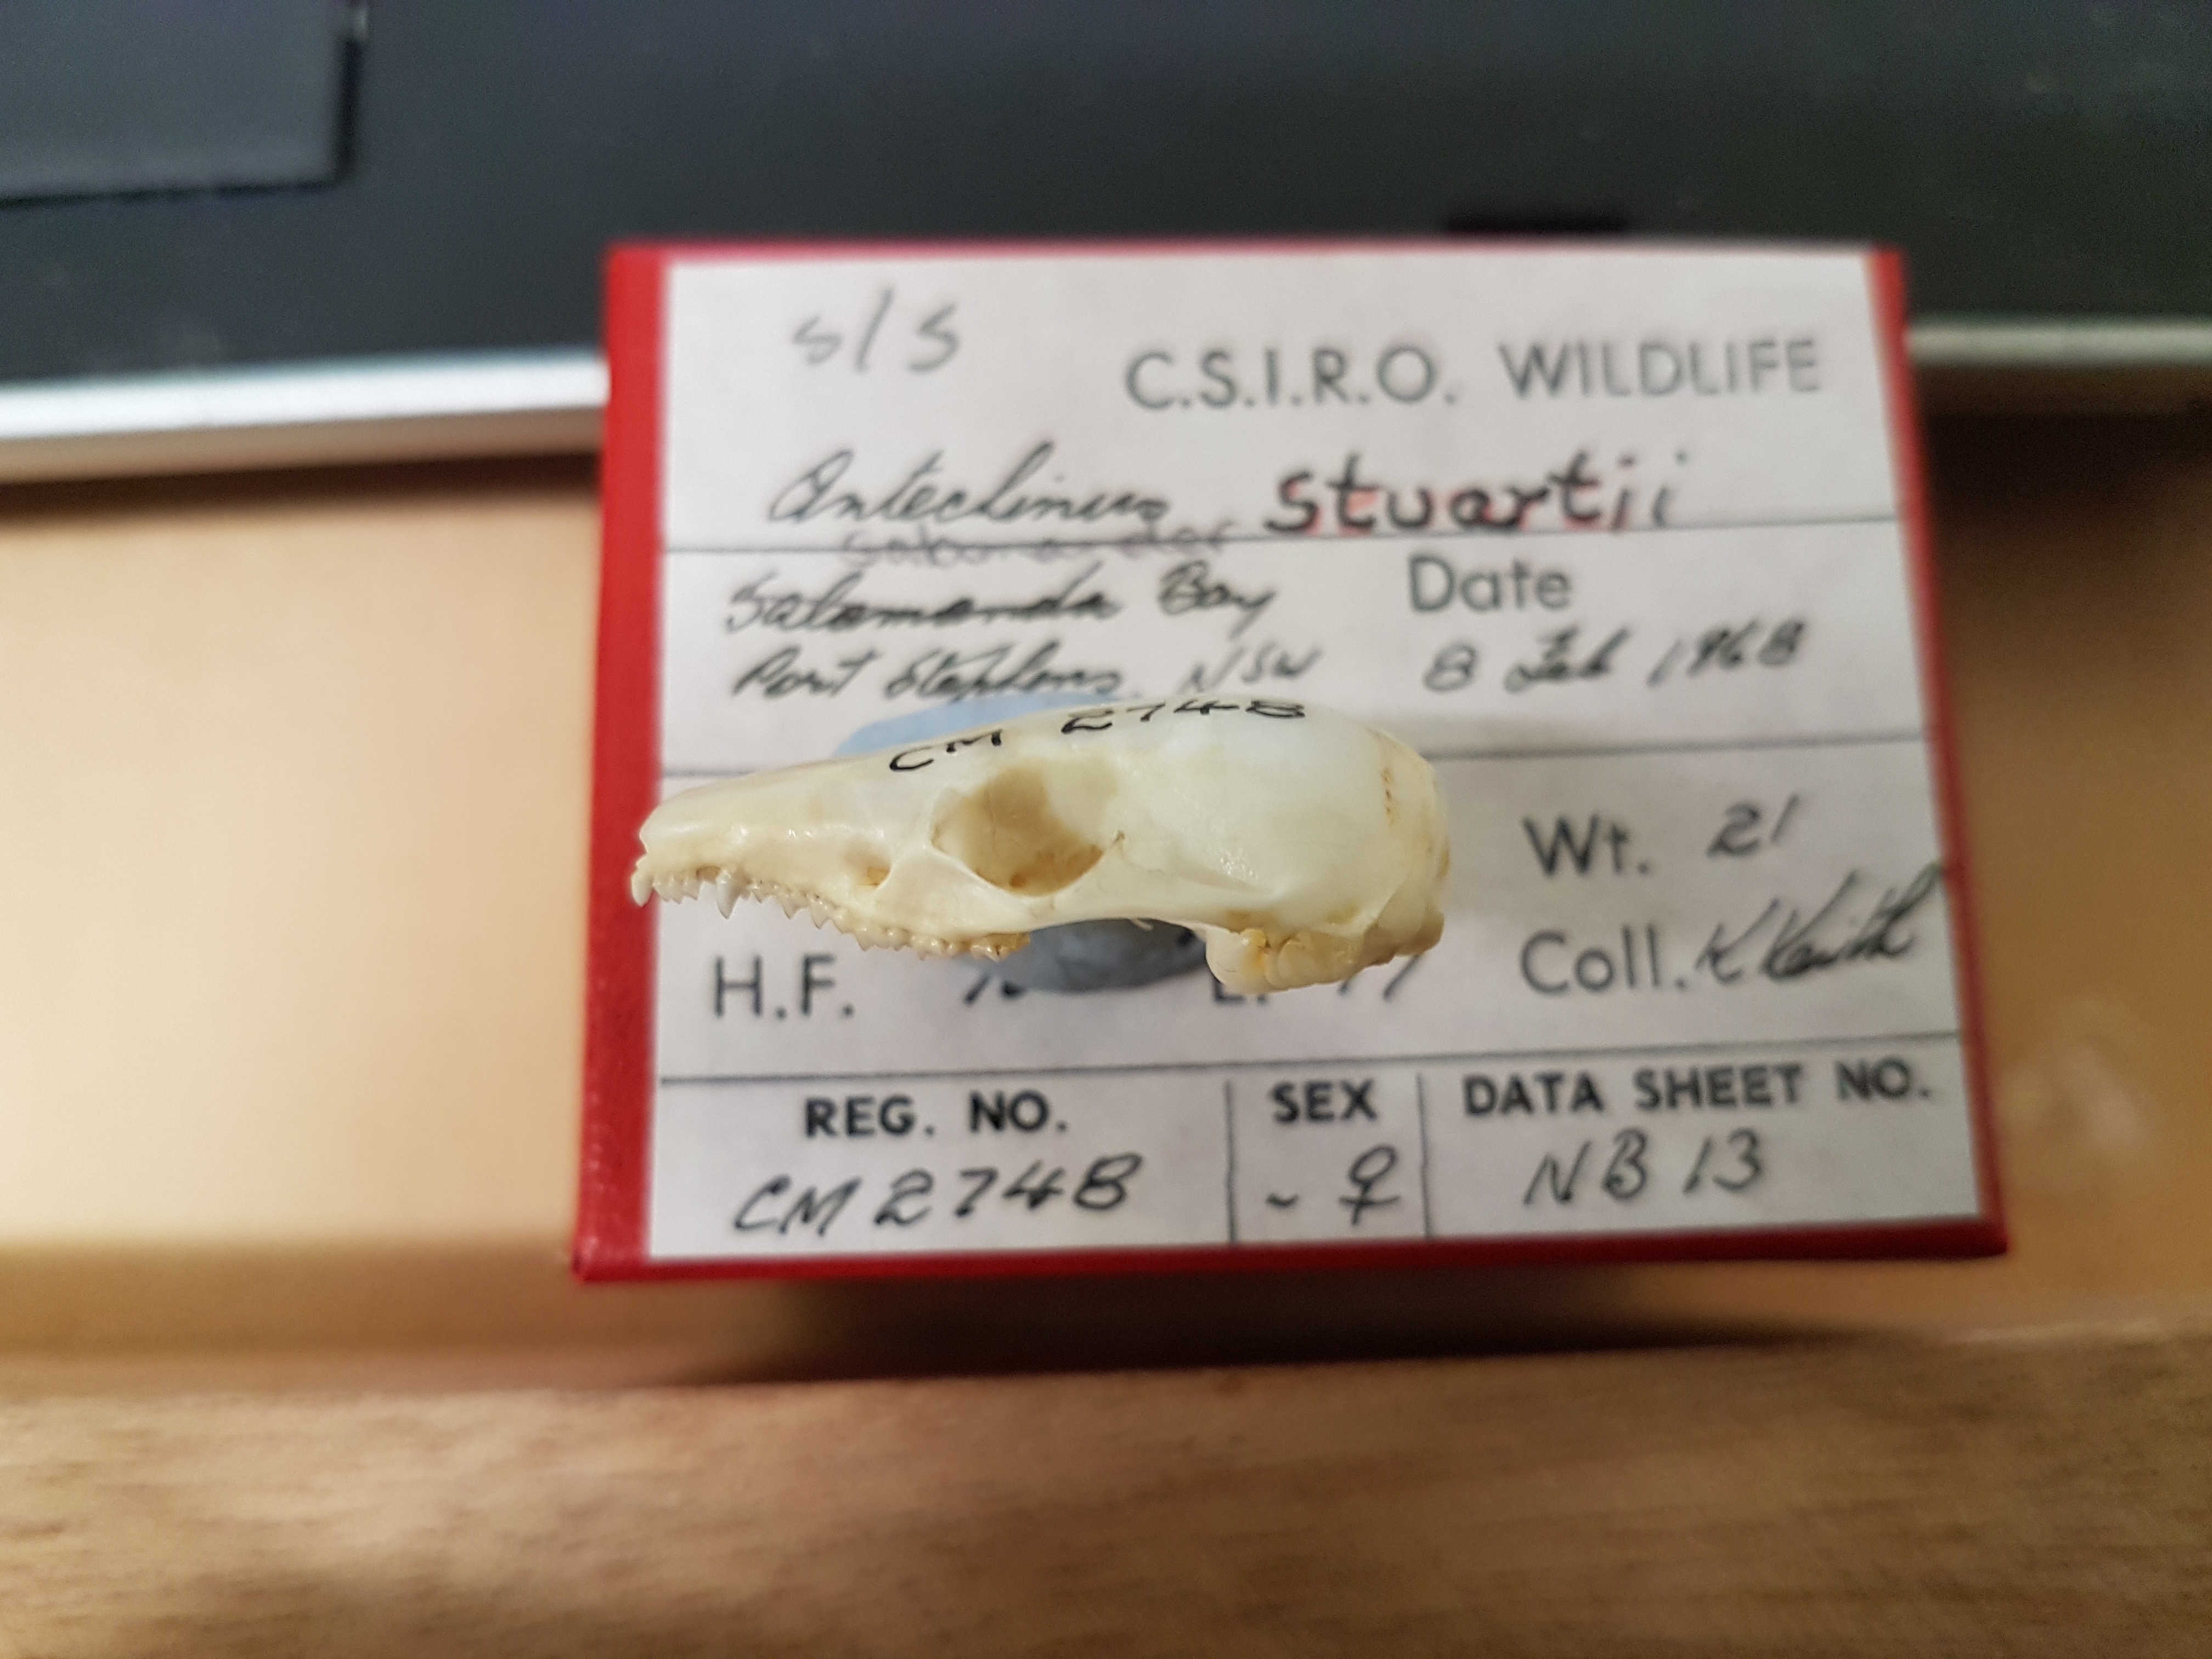 s/s
C.S.I.R.O. WILDLIFE
Antechinus stuartii
Salamander
Salamanda Bay
Date
Port Stephens, NSW
8 Feb 1968
CM 2748
Wt. 21
H.F.
Coll. K Keith
REG. NO.
SEX
DATA SHEET NO.
CM 2748
~ ♀
NB 13